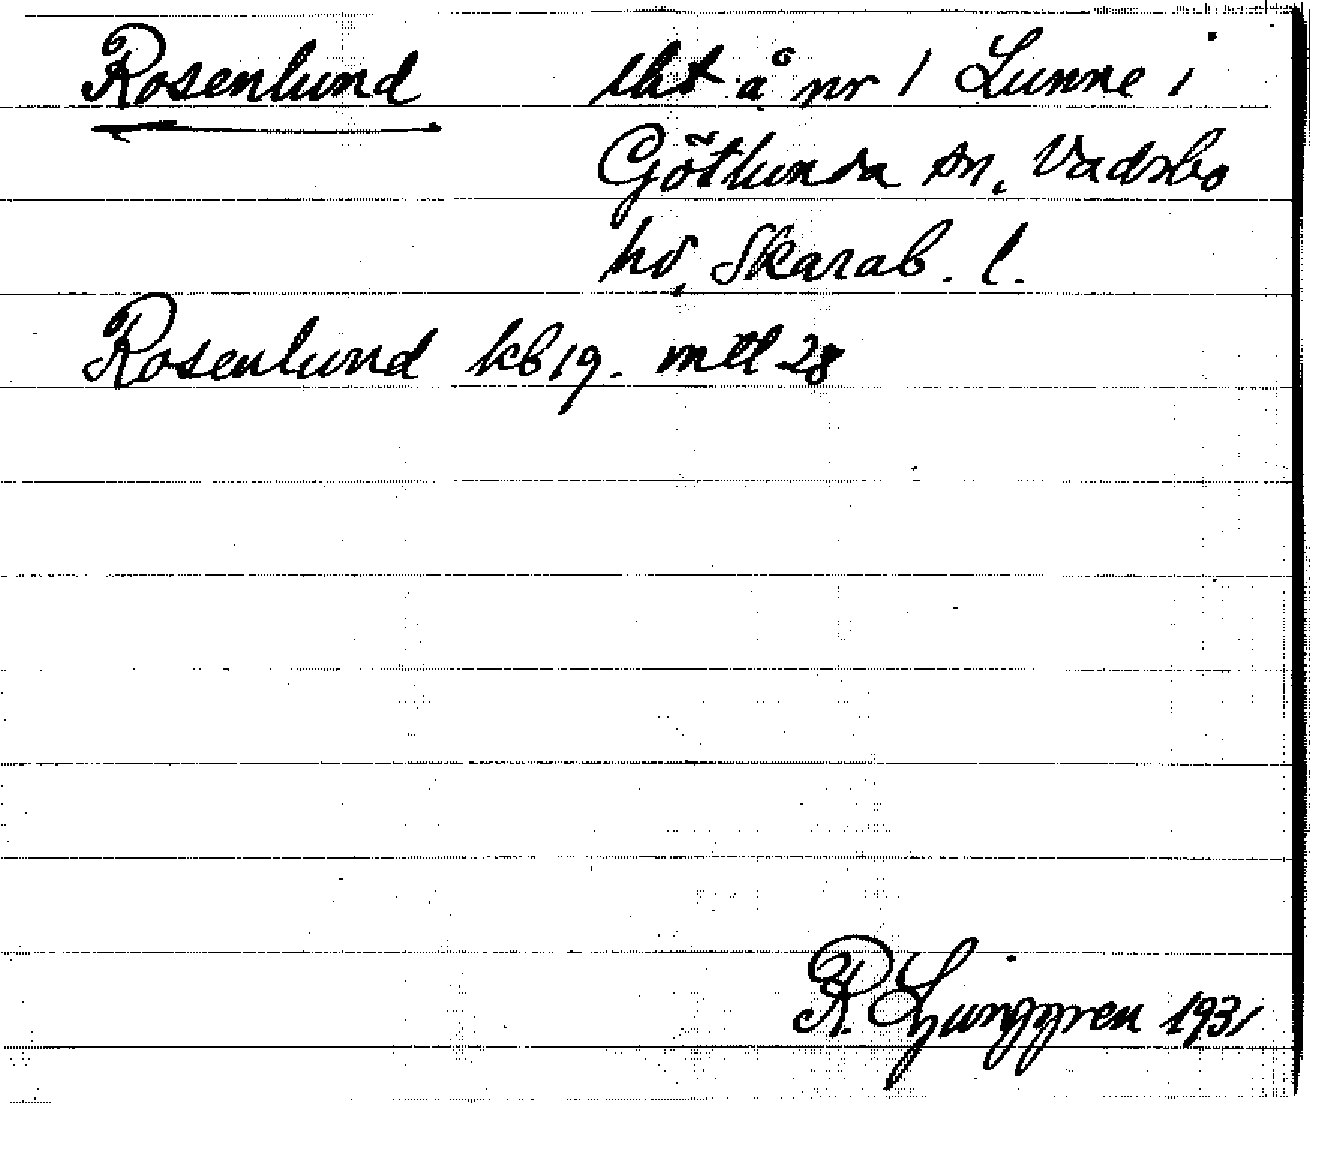 Rosenlund lht å nr 1 Lunne i
Götlunda sn, Vadsbo
hd, Skarab. l.
Rosenlund kb 19. mtl 28
R. Ljunggren 1931